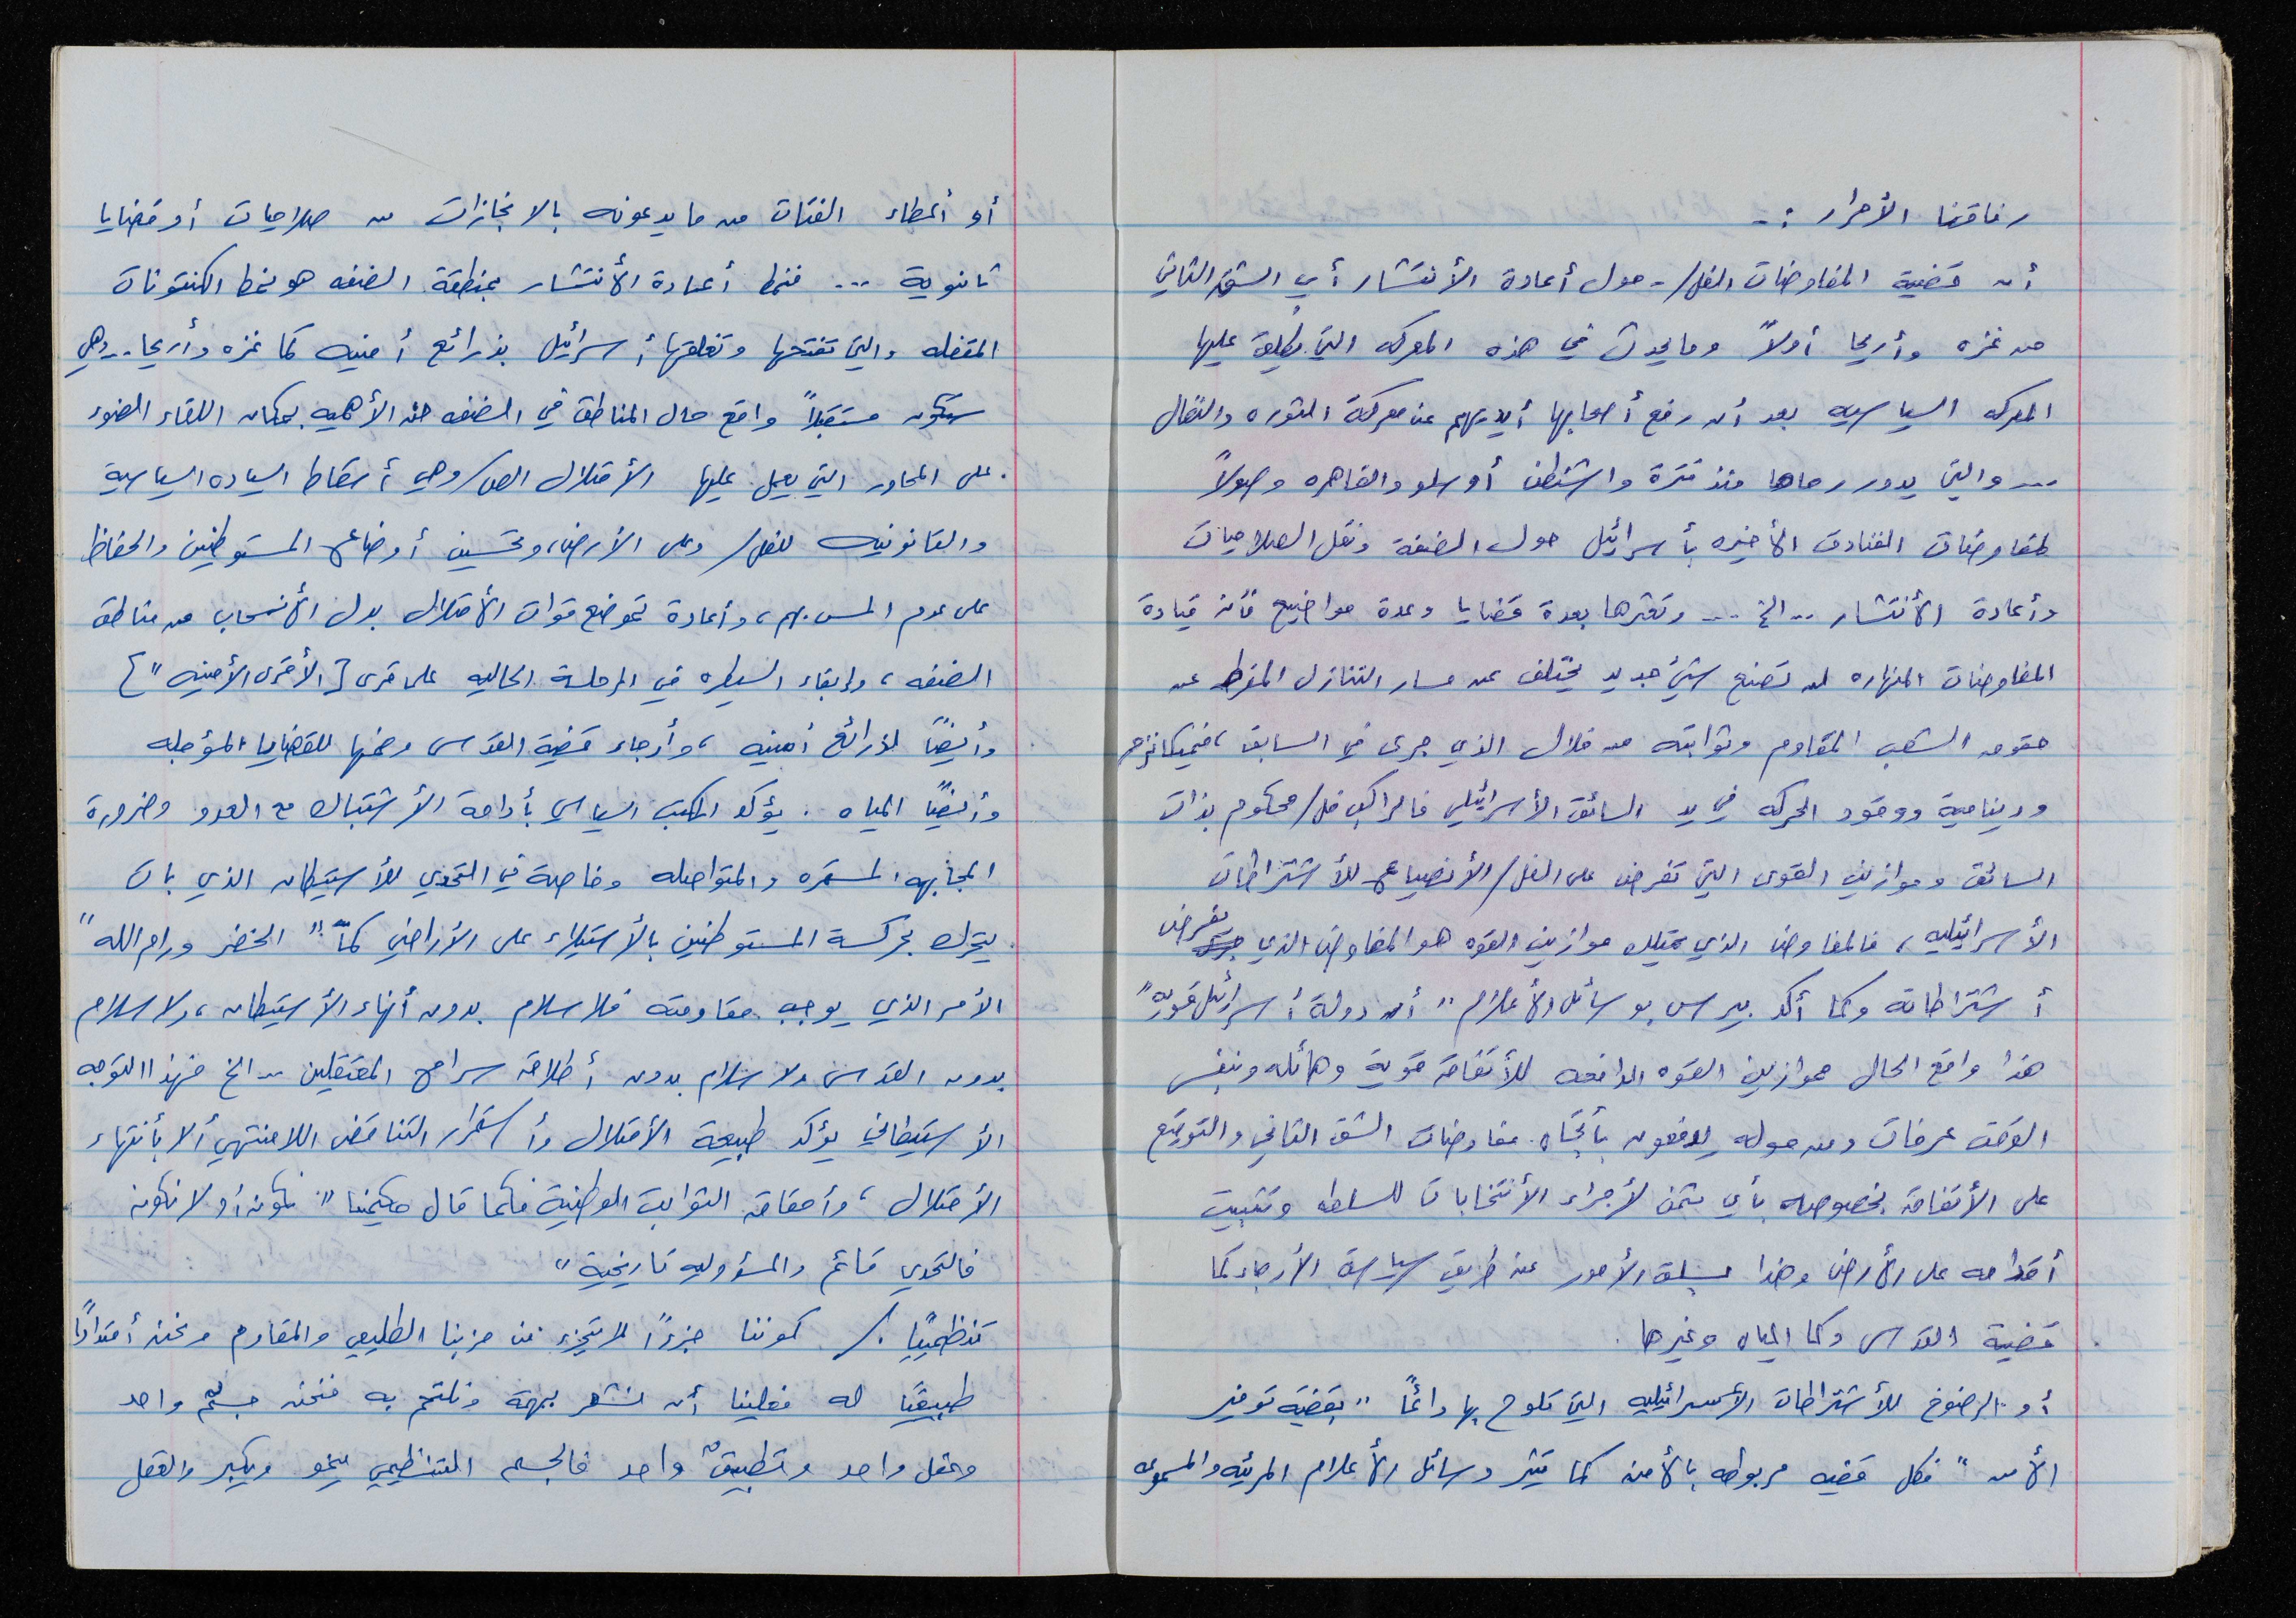 رفاقنا الأحرار :-
أن قضية المفاوضات الفل/- حول أعادة الأنتشار أي الشق الثاني
من غزه وأريحا أولاً وما يحدث في هذه المعركه التي يطلق عليها
المعركه السياسيه بعد أن رفع أصحابها أيديهم عن معركة الثوره والنضال
... والتي يدور رحاها منذ فترة واشنطن أوسلو والقاهره وصولاً
لمفاوضات الفنادق الأخيره بأسرائيل حول الضفة ونقل الصلاحيات
وأعادة الأنتشار .. الخ ... وتعثرها بعدة قضايا وعدة مواضيع فأن قيادة
المفاوضات المنهاره لن تصنع شيئ جديد يختلف عن مسار التنازل المفرط عن
حقوق الشعب المقاوم وثوابته من خلال الذي جرى في السابق، فميكانزم
ودينامية ووقود الحركه في يد السائق الأسرائيلي فالراكب فل/ محكوم بذات
السائق وموازين القوى التي تفرض على الفل/ الأنصياع للأشتراطات
الأسرائيليه، فالمفاوض الذي يمتلك موازين القوه هو المفاوض الذي يفرض
أشتراطاته وكما أكد بيرس بوسائل الأعلام " أن دولة أسرائيل قويه "
هذا واقع الحال فموازين القوه الدافعه للأتفاق قوية وهائله وبنفس
الوقت عرفات ومن حوله يدفعون بأتجاه مفاوضات الشق الثاني والتوقيع
على الأتفاق بخصوصه بأي ثمن لأجراء الأنتخابات للسلطه وتثبيت
أقدامه على الأرض وهذا يسبق الأمور عن طريق سياسة الأرجاء كما
قضية القدس وكما المياه وغيرها .
أو الرضوخ للأشتراطات الأسرائيليه التي تلوح بها دائماً " بقضية توفير
الأمن " فكل قضيه مربوطه بالأمن كما تبثر وسائل الأعلام المرئيه والمسموعه
أو أعطاء الفتات من ما يدعونه بالانجازات من صلاحيات أو قضايا
ثانوية ... فنمط أعادة الأنتشار بمنطقة الضفه هو نمط الكنتونات
المقفله والتي تفتحها وتغلقها أسرائيل بذرائع أمنيه كما غزه وأريحا .. وهي
ستكون مستقبلاً واقع حال المناطق في الضفه فمن الأهميه بمكان القاء الضوء
على المحاور التي يعمل عليها الأحتلال الص/ وهي أسقاط السياده السياسية
والقانونيه للفل/ وعلى الأرض، وتحسين أوضاع المستوطنين والحفاظ
على عدم المس بهم، وأعادة تموضع قوات الأحتلال بدل الأنسحاب من مناطق
الضفه، وإبقاء السيطره في المرحلة الحاليه على قرى [ الأقرى الأمنيه " ]
وأيضًا لذرائع أمنيه، وأرجاء قضية القدس وضمها للقضايا المؤجله
وأيضًا المياه . يؤكد المكتب السياسي بأدامة الأشتباك مع العدو وضرورة
المجابهه المستمره والمتواصله وخاصة في التحدي للأستيطان الذي بات
يتحرك بحركة المستوطنين بالأستيلاء على الأراضي كما " الخضر ورام الله "
الأمر الذي يوجب مقاومته فلا سلام بدون أنهاء الأستيطان، ولا سلام
بدون القدس ولا سلام بدون أطلاق سراح المعتقلين .. الخ فهذا التوجه
الأستيطاني يؤكد طبيعة الأحتلال وأستمرار التناقض اللامنتهي ألا بأنتهاء
الأحتلال، وأحقاق الثوابت الوطنية فكما قال حكيمنا " نكون أو لا نكون
فالتحدي قائم والمسؤوليه تاريخية "
تنظيميًا ./ كوننا جزءًا لا يتجزء من حزبنا الطليعي والمقاوم ونحن أمتدادًا
طبيعيًا له فعلينا أن نشعر بهمة ونلتحم به فنحن جسم واحد
وعقل واحد وتطبيق واحد فالجسم التنظيمي ينمو ويكبر والعقل